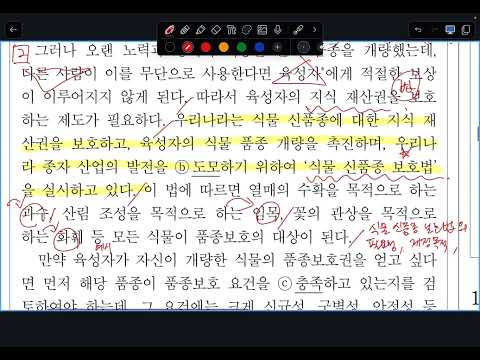 그러나 오랜 노력과 품종을 개량했는데,
다른 사람이 이를 무단으로 사용한다면 육성자에게 적절한 보상
이 이루어지지 않게 된다. 따라서 육성자의 지식 재산권을 보호
하는 제도가 필요하다. 우리나라는 식물 신품종에 대한 지식 재
산권을 보호하고, 육성자의 식물 품종 개량을 촉진하며, 우리나
라 종자 산업의 발전을 ⓑ도모하기 위하여 '식물 신품종 보호법'
을 실시하고 있다. 이 법에 따르면 열매의 수확을 목적으로 하는
과수, 산림 조성을 목적으로 하는 임목, 꽃의 관상을 목적으로
하는 화훼 등 모든 식물이 품종보호의 대상이 된다.
식물 신품종 보호법의
필요성, 제정목적,
예시
만약 육성자가 자신이 개량한 식물의 품종보호권을 얻고 싶다
면 먼저 해당 품종이 품종보호 요건을 ⓒ충족하고 있는지를 검
토하여야 하는데, 그 요건에는 크게 신규성, 구별성, 안정성 등
1